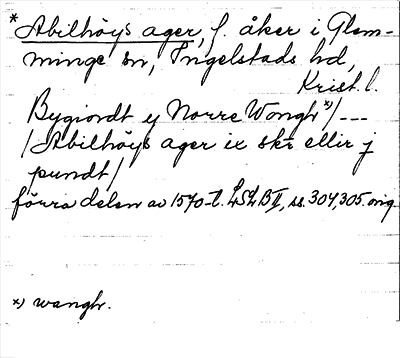 * Abilhöys ager, f. åker i Glem-
minge sn, Ingelstads hd,
Krist. l.
Bygiordt y Norre Wongh*)/ ---
/Abilhöys ager ix skr ellir j
pundt/
förra delen av 1570-t. LSLB II, ss. 304, 305. orig.
*) wangh.